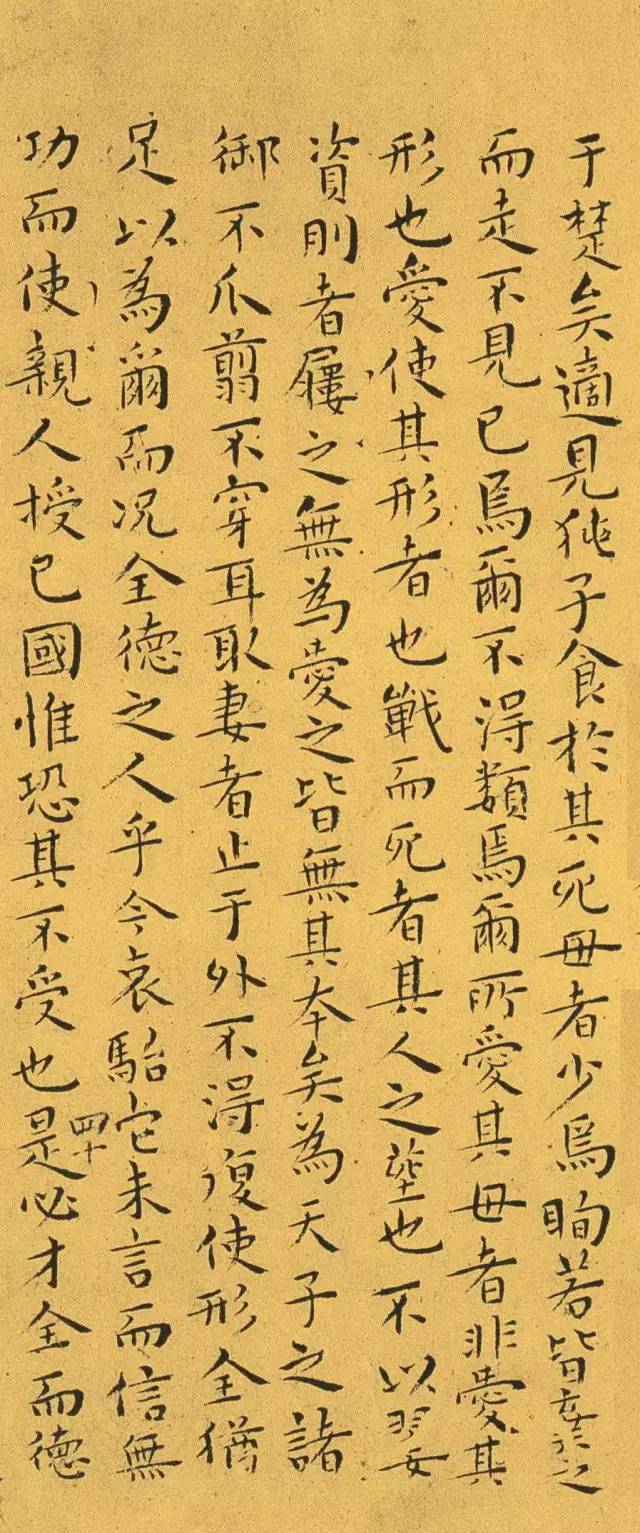 于楚矣適見㹠子食於其死母者少焉眴若皆棄之
而走不見己焉爾不得類焉爾所愛其母者非愛其
形也愛使其形者也戰而死者其人之塟也不以翣
資刖者屢之無為愛之皆無其本矣為天子之諸
御不爪翦不穿耳取妻者止于外不得復使形全猶
足以為爾而况全德之人乎今哀駘它未言而信無
功而使親人授己國惟恐其不受也是必才全而德
四十